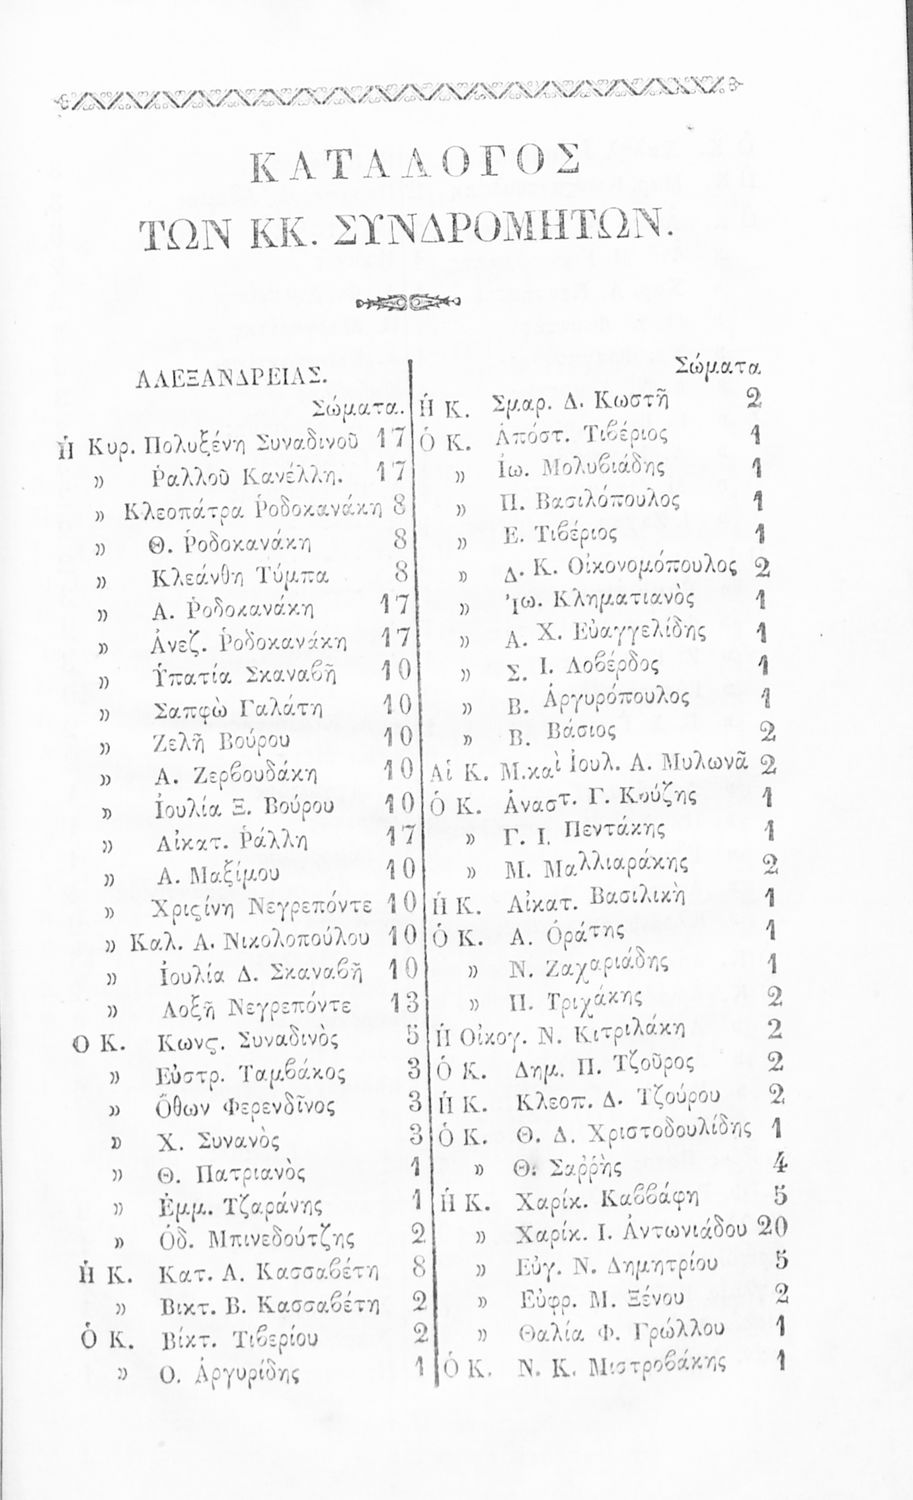 ΚΑΤΑΛΟΓΟΣ
ΤΩΝ ΚΚ. ΣΥΝΔΡΟΜΗΤΩΝ.
ΑΛΕΞΑΝΔΡΕΙΑΣ.
Σώματα.
Ἡ Κυρ. Πολυξένη Συναδινοῦ 17
» Ῥαλλοῦ Κανέλλη. 17
» Κλεοπάτρα Ῥοδοκανάκη 8
» Θ. Ῥοδοκανάκη 8
» Κλεάνθη Τύμπα 8
» Α. Ῥοδοκανάκη 17
» Ἀνεζ. Ῥοδοκανάκη 17
» Ὑπατία Σκαναβῆ 10
» Σαπφὼ Γαλάτη 10
» Ζελῆ Βούρου 10
» Α. Ζερβουδάκη 10
» Ἰουλία Ξ. Βούρου 10
» Αἰκατ. Ῥάλλη 17
» Α. Μαξίμου 10
» Χριϛίνη Νεγρεπόντε 10
» Καλ. Α. Νικολοπούλου 10
» Ἰουλία Δ. Σκαναβῆ 10
» Λοξῆ Νεγρεπόντε 13
Ο Κ. Κωνϛ. Συναδινὸς 5
» Εὐστρ. Ταμβάκος 3
» Ὄθων Φερενδῖνος 3
» Χ. Συνανὸς 3
» Θ. Πατριανὸς 1
» Ἐμμ. Τζαράνης 1
» Ὀδ. Μπινεδούτζης 2
Ἡ Κ. Κατ. Α. Κασσαβέτη 8
» Βικτ. Β. Κασσαβέτη 2
Ὁ Κ. Βίκτ. Τιβερίου 2
» Ο. Ἀργυρίδης 1
Σώματα
Ἡ Κ. Σμαρ. Δ. Κωστῆ 2
Ὁ Κ. Ἀπόστ. Τιβέριος 1
» Ἰω. Μολυβιάδης 1
» Π. Βασιλόπουλος 1
» Ε. Τιβέριος 1
» Δ. Κ. Οἰκονομόπουλος 2
» Ἰω. Κληματιανὸς 1
» Α. Χ. Εὐαγγελίδης 1
» Σ. Ι. Λοβέρδος 1
» Β. Ἀργυρόπουλος 1
» Β. Βάσιος 2
Αἱ Κ. Μ. καὶ Ἰουλ. Α. Μυλωνᾶ 2
Ὁ Κ. Ἀναστ. Γ. Κούζης 1
» Γ. Ι. Πεντάκης 1
» Μ. Μαλλιαράκης 2
Ἡ Κ. Αἰκατ. Βασιλικὴ 1
Ὁ Κ. Α. Ὁράτης 1
» Ν. Ζαχαριάδης 1
» Π. Τριχάκης 2
Ἡ Οἰκογ. Ν. Κιτριλάκη 2
Ὁ Κ. Δημ. Π. Τζοῦρος 2
Ἡ Κ. Κλεοπ. Δ. Τζούρου 2
Ὁ Κ. Θ. Δ. Χριστοδουλίδης 1
» Θ. Σαῤῥὴς 4
Ἡ Κ. Χαρίκ. Καββάφη 5
» Χαρίκ. Ι. Ἀντωνιάδου 20
» Εὐγ. Ν. Δημητρίου 5
» Εὐφρ. Μ. Ξένου 2
» Θαλία Φ. Γρώλλου 1
Ὁ Κ. Ν. Κ. Μιστροβάκης 1